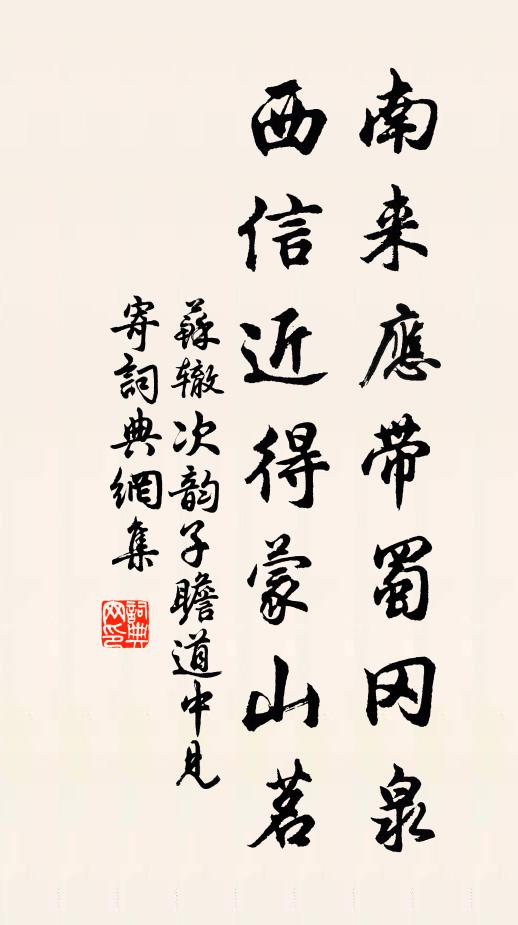 南来應带蜀冈泉
西信近得蒙山茗
蘇辙次韵子瞻道中見
寄詞典網集
詞典网印